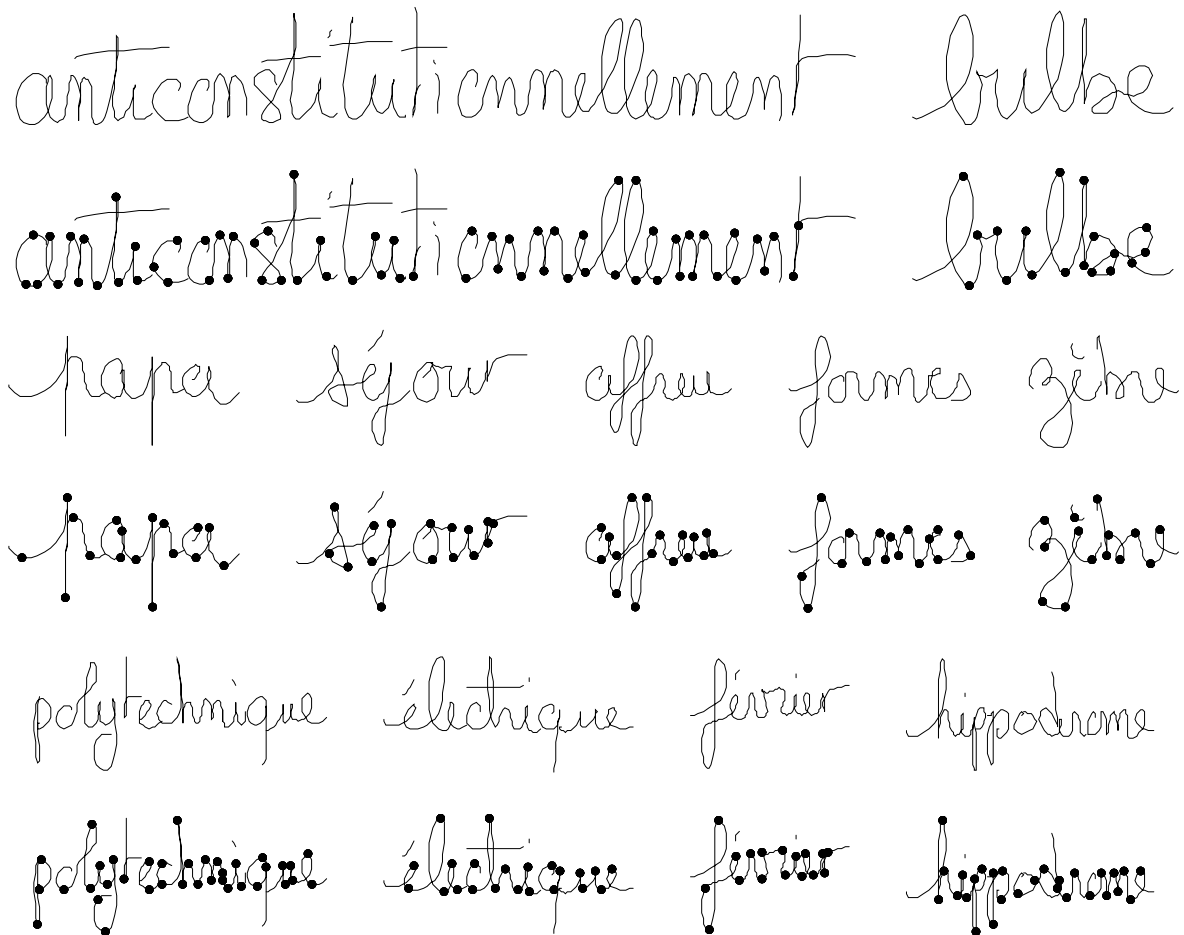 anticonstitutionnellement bulbe
anticonstitutionnellement bulbe
papa séjour affreu formes zèbre
papa séjour affreu formes zèbre
polytechnique électrique février hippodrome
polytechnique électrique février hippodrome